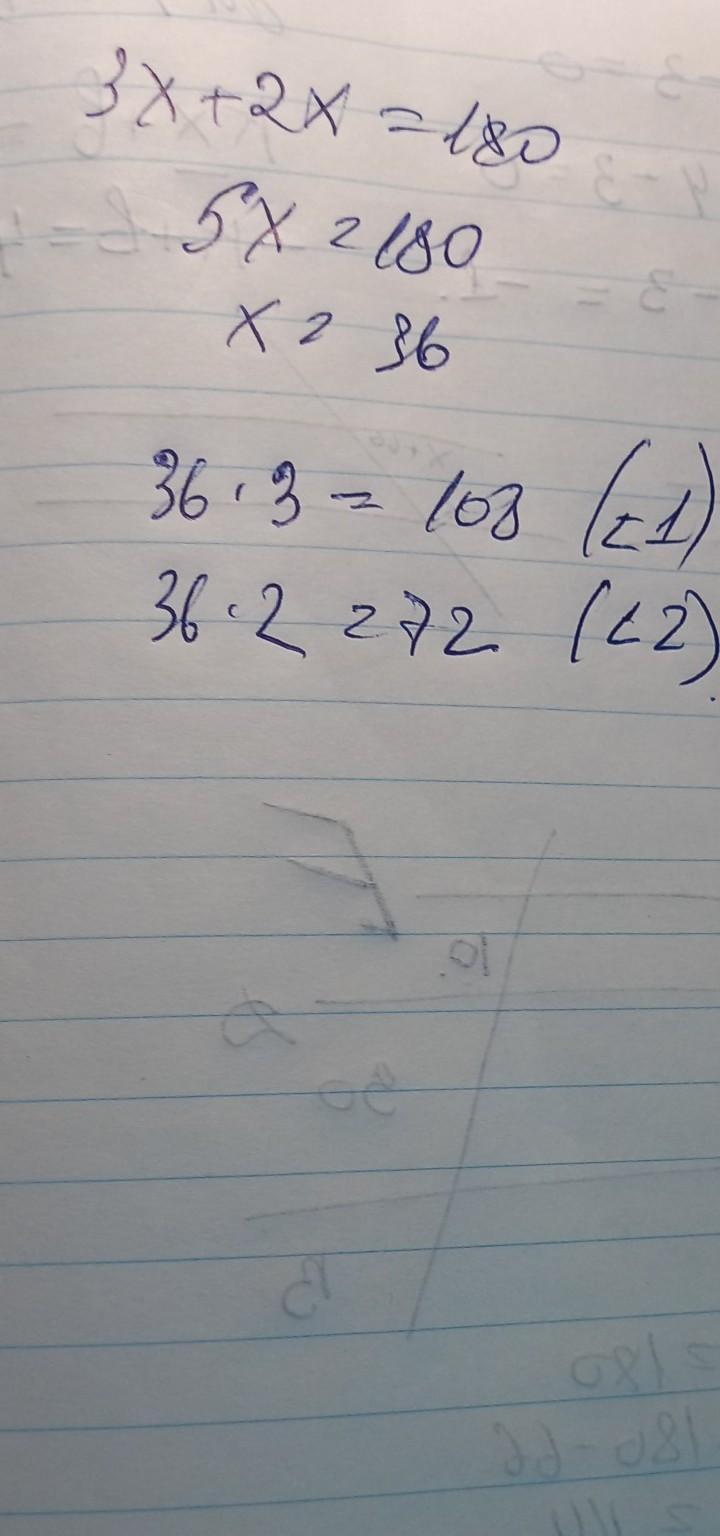 3x+2x=180
5x=180
x=36
36·3=108 (∠1)
36·2=72 (∠2)